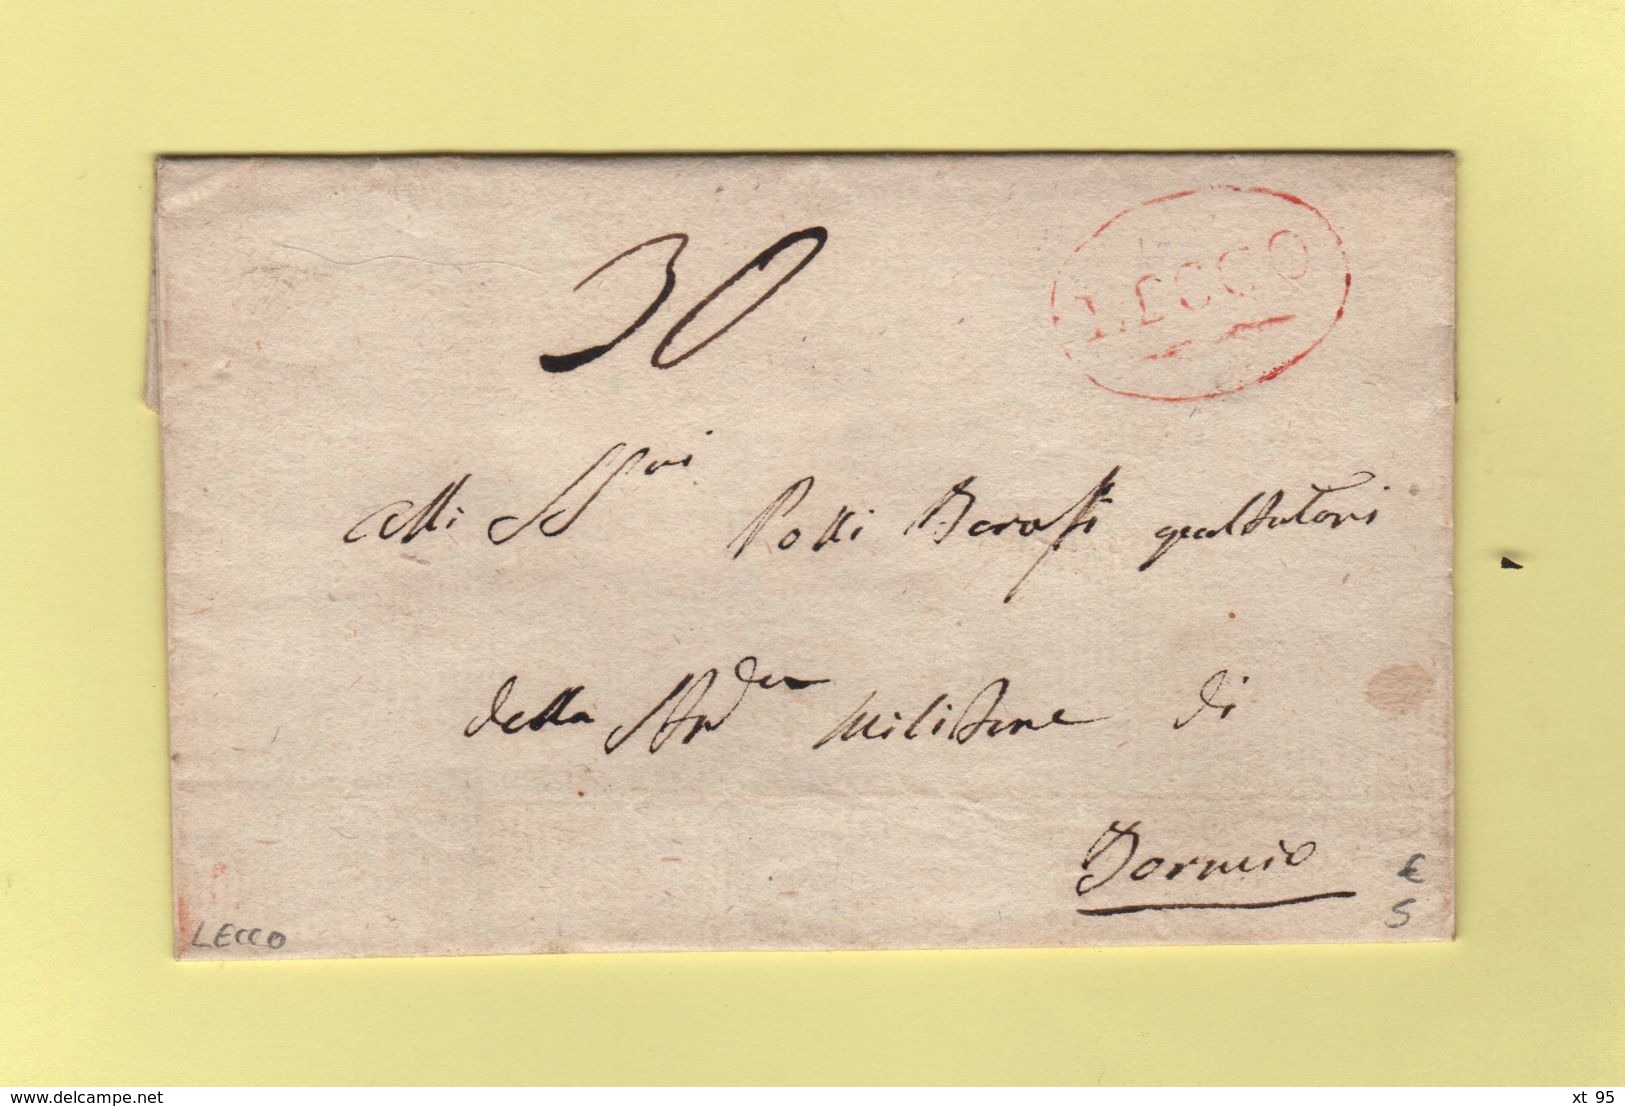 30
LECCO
Alli SSri Polti Berassi
della Strda Militare di
Bormio
LECCO
€
5
www.delcampe.net
xt 95